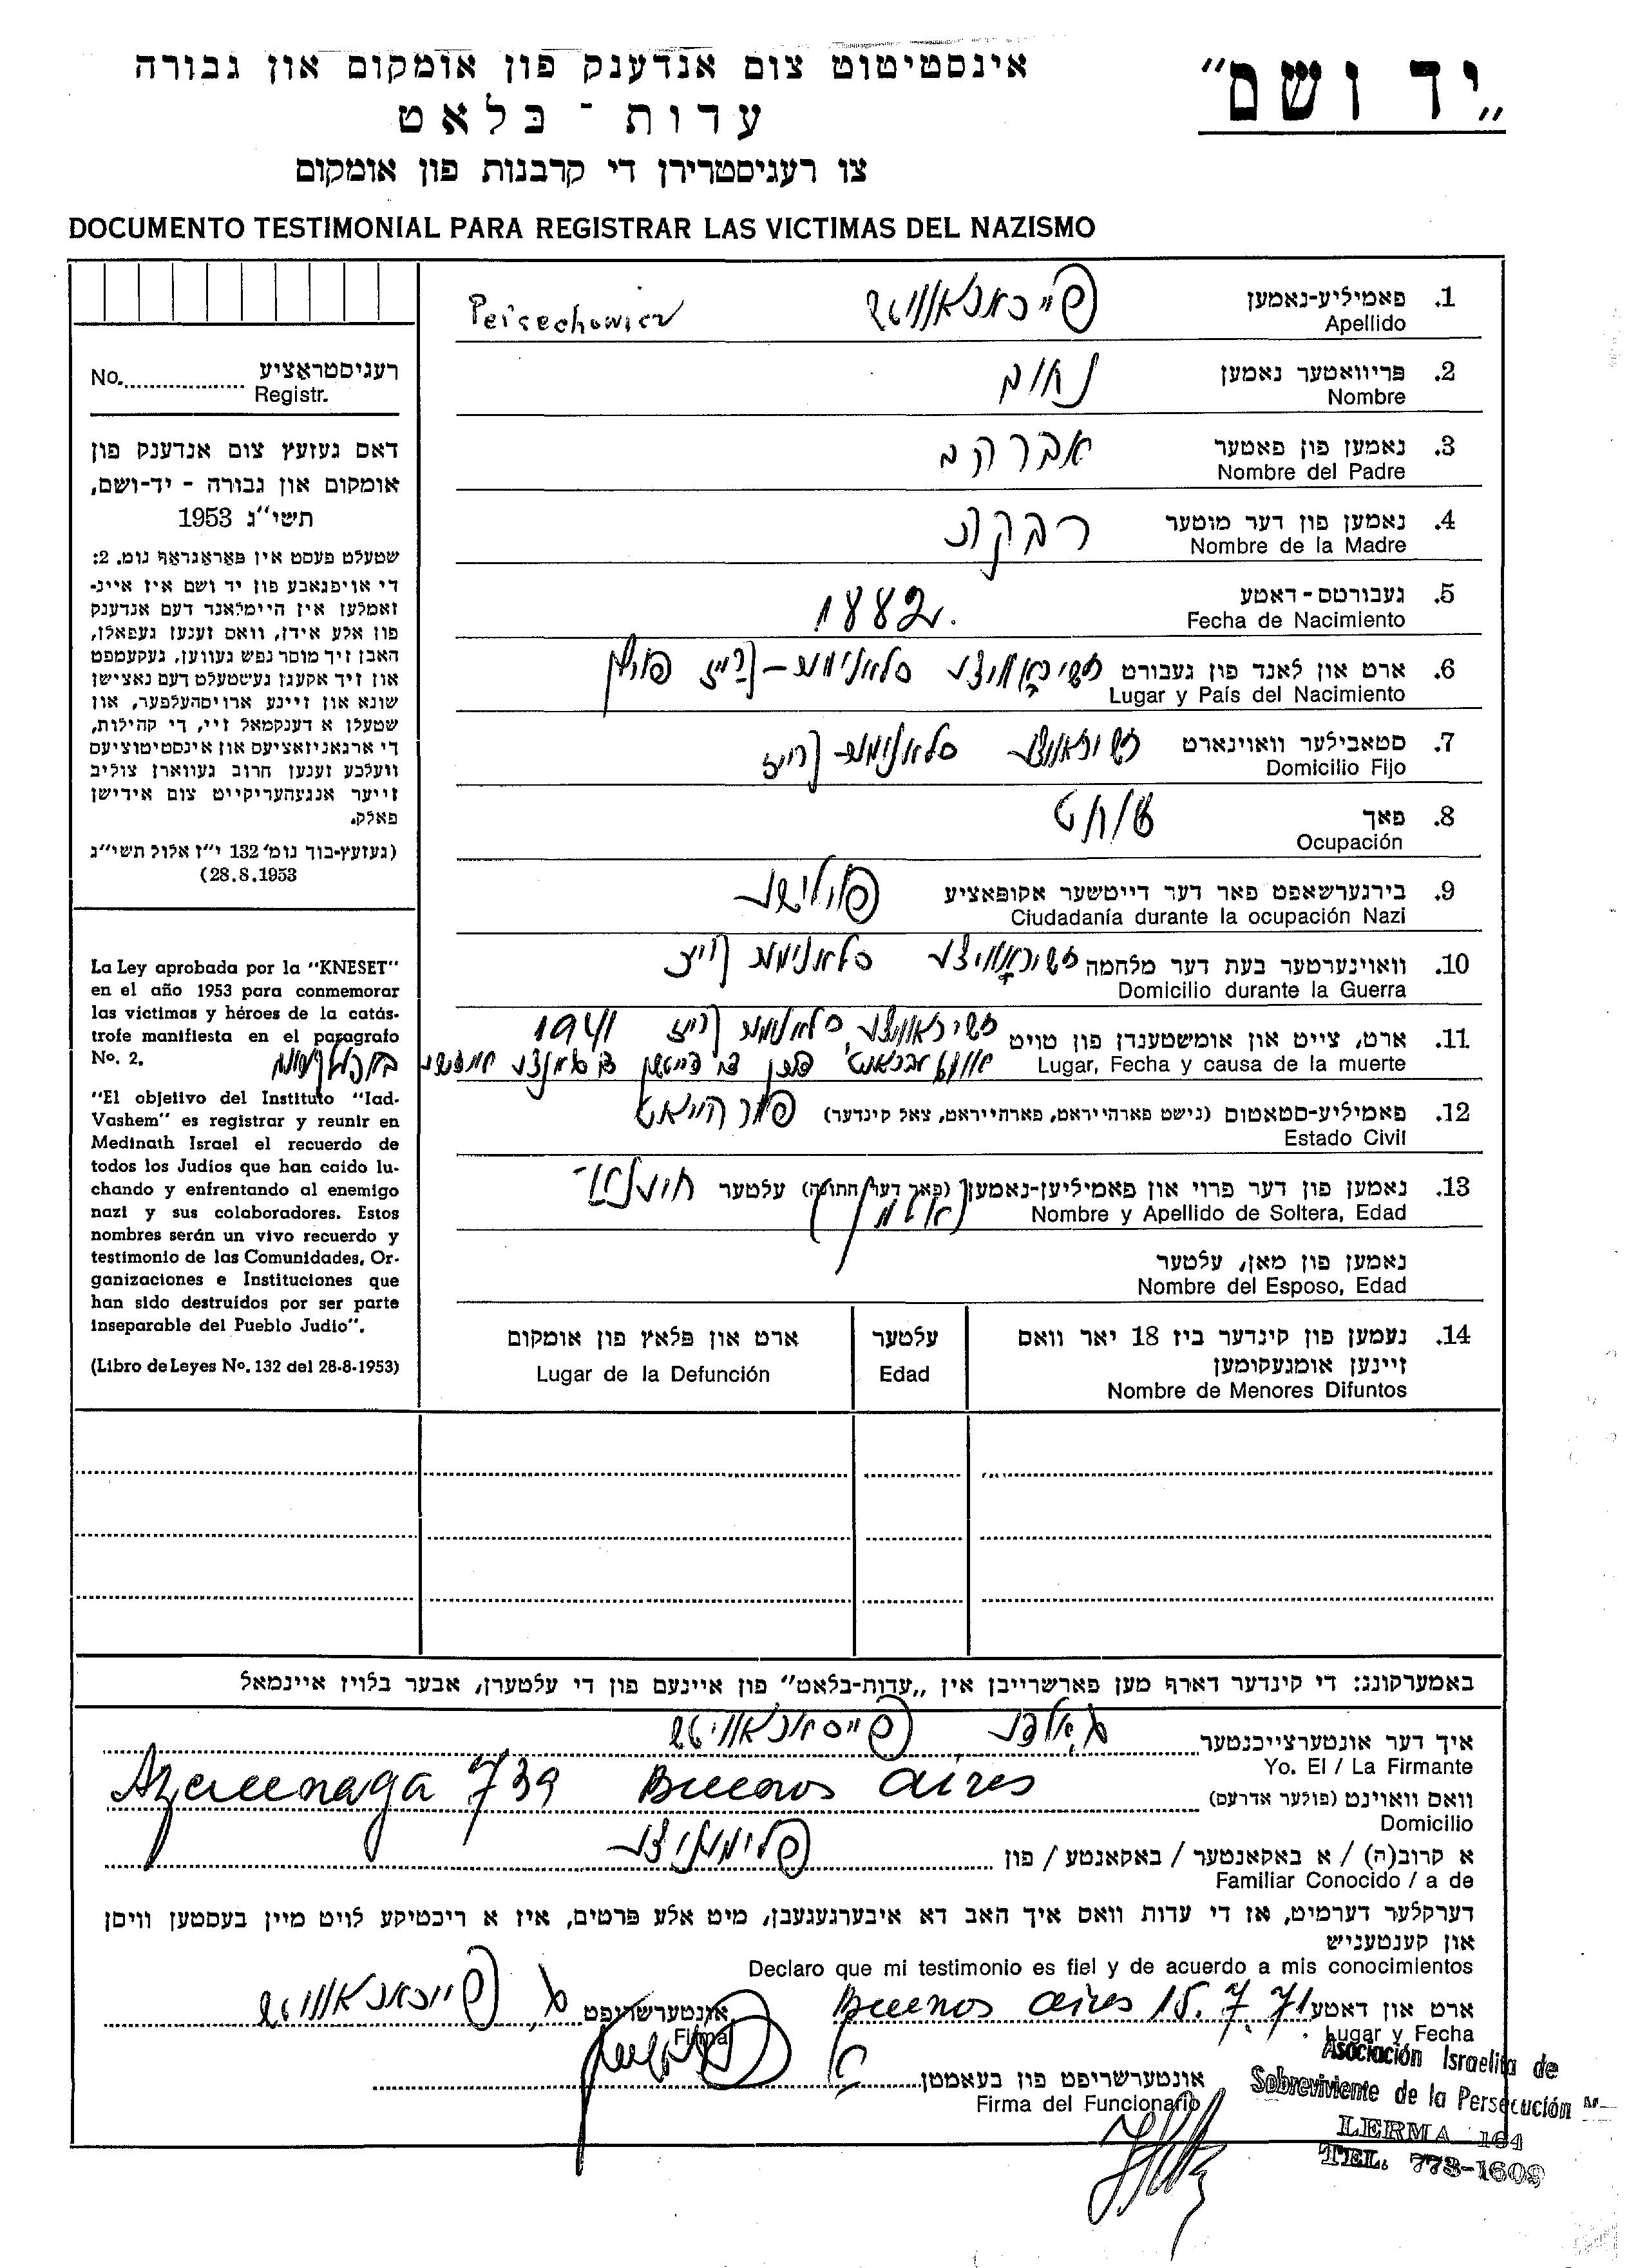 „יד ושם"
אינסטיטוט צום אנדענק פון אומקום און גבורה
עדות - בלאט
צו רעגיסטרירן די קרבנות פון אומקום
DOCUMENTO TESTIMONIAL PARA REGISTRAR LAS VICTIMAS DEL NAZISMO
No. רעגיסטראציע
Registr.
דאס געזעץ צום אנדענק פון
אומקום און גבורה - יד-ושם,
תשי"ג 1953
שטעלט פעסט אין פאראגראף נומ. 2:
די אויפגאבע פון יד ושם איז איינ-
זאמלען אין היימלאנד דעם אנדענק
פון אלע אידן, וואס זענען געפאלן,
האבן זיך מוסר נפש געווען, געקעמפט
און זיך אקעגן געשטעלט דעם נאצישן
שונא און זיינע ארויסהעלפער, און
שטעלן א דענקמאל זיי, די קהילות,
די ארגאניזאציעס און אינסטיטוציעס
וועלכע זענען חרוב געווארן צוליב
זייער אנגעהעריקייט צום אידישן
פאלק.
(געזעץ-בוך נומ' 132 י"ז אלול תשי"ג
28.8.1953)
La Ley aprobada por la "KNESET"
en el año 1953 para conmemorar
las victimas y héroes de la catás-
trofe manifiesta en el paragrafo
No. 2.
"El objetivo del Instituto "Iad-
Vashem" es registrar y reunir en
Medinath Israel el recuerdo de
todos los Judíos que han caido lu-
chando y enfrentando al enemigo
nazi y sus colaboradores. Estos
nombres serán un vivo recuerdo y
testimonio de las Comunidades, Or-
ganizaciones e Instituciones que
han sido destruidos por ser parte
inseparable del Pueblo Judio".
(Libro de Leyes No. 132 del 28-8-1953)
1. פאמיליע-נאמען
Apellido
2. פריוואטער נאמען נאום
Nombre
3. נאמען פון פאטער אברהם
Nombre del Padre
4. נאמען פון דער מוטער רבקה
Nombre de la Madre
5. געבורטס-דאטע 1882.
Fecha de Nacimiento
6. ארט און לאנד פון געבורט סלאנימער - קרייז פוילן
Lugar y País del Nacimiento
7. סטאבילער וואוינארט סלאנימער קרייז
Domicilio Fijo
8. פאך שוחט
Ocupación
9. בירגערשאפט פאר דער דייטשער אקופאציע פוילישע
Ciudadanía durante la ocupación Nazi
10. וואוינערטער בעת דער מלחמה סלאנימער קרייז
Domicilio durante la Guerra
11. ארט, צייט און אומשטענדן פון טויט סלאנימער קרייז 1941
Lugar, Fecha y causa de la muerte
12. פאמיליע-סטאטוס (נישט פארהייראט, פארהייראט, צאל קינדער) פארהייראט
Estado Civil
13. נאמען פון דער פרוי און פאמיליען-נאמען (פאר דער חתונה) עלטער
Nombre y Apellido de Soltera, Edad
נאמען פון מאן, עלטער
Nombre del Esposo, Edad
14. נעמען פון קינדער ביז 18 יאר וואס עלטער ארט און פלאץ פון אומקום
זיינען אומגעקומען
Nombre de Menores Difuntos Edad Lugar de la Defunción
באמערקונג: די קינדער דארף מען פארשרייבן אין „עדות-בלאט" פון איינעם פון די עלטערן, אבער בלויז איינמאל
איך דער אונטערצייכנטער
Yo. El / La Firmante
וואס וואוינט (פולער אדרעס) Azcuenaga 739 Buenos Aires
Domicilio
א קרוב(ה) / א באקאנטער / באקאנטע / פון
Familiar Conocido / a de
דערקלער דערמיט, אז די עדות וואס איך האב דא איבערגעגעבן, מיט אלע פרטים, איז א ריכטיקע לויט מיין בעסטען וויסן
און קענטעניש
Declaro que mi testimonio es fiel y de acuerdo a mis conocimientos
ארט און דאטע Buenos Aires 15.7.71. אונטערשריפט
Lugar y Fecha Firma
אונטערשריפט פון בעאמטן
Firma del Funcionario
Asociación Israelita de
Sobreviviente de la Persecución
LERMA 164
TEL. 773-1609